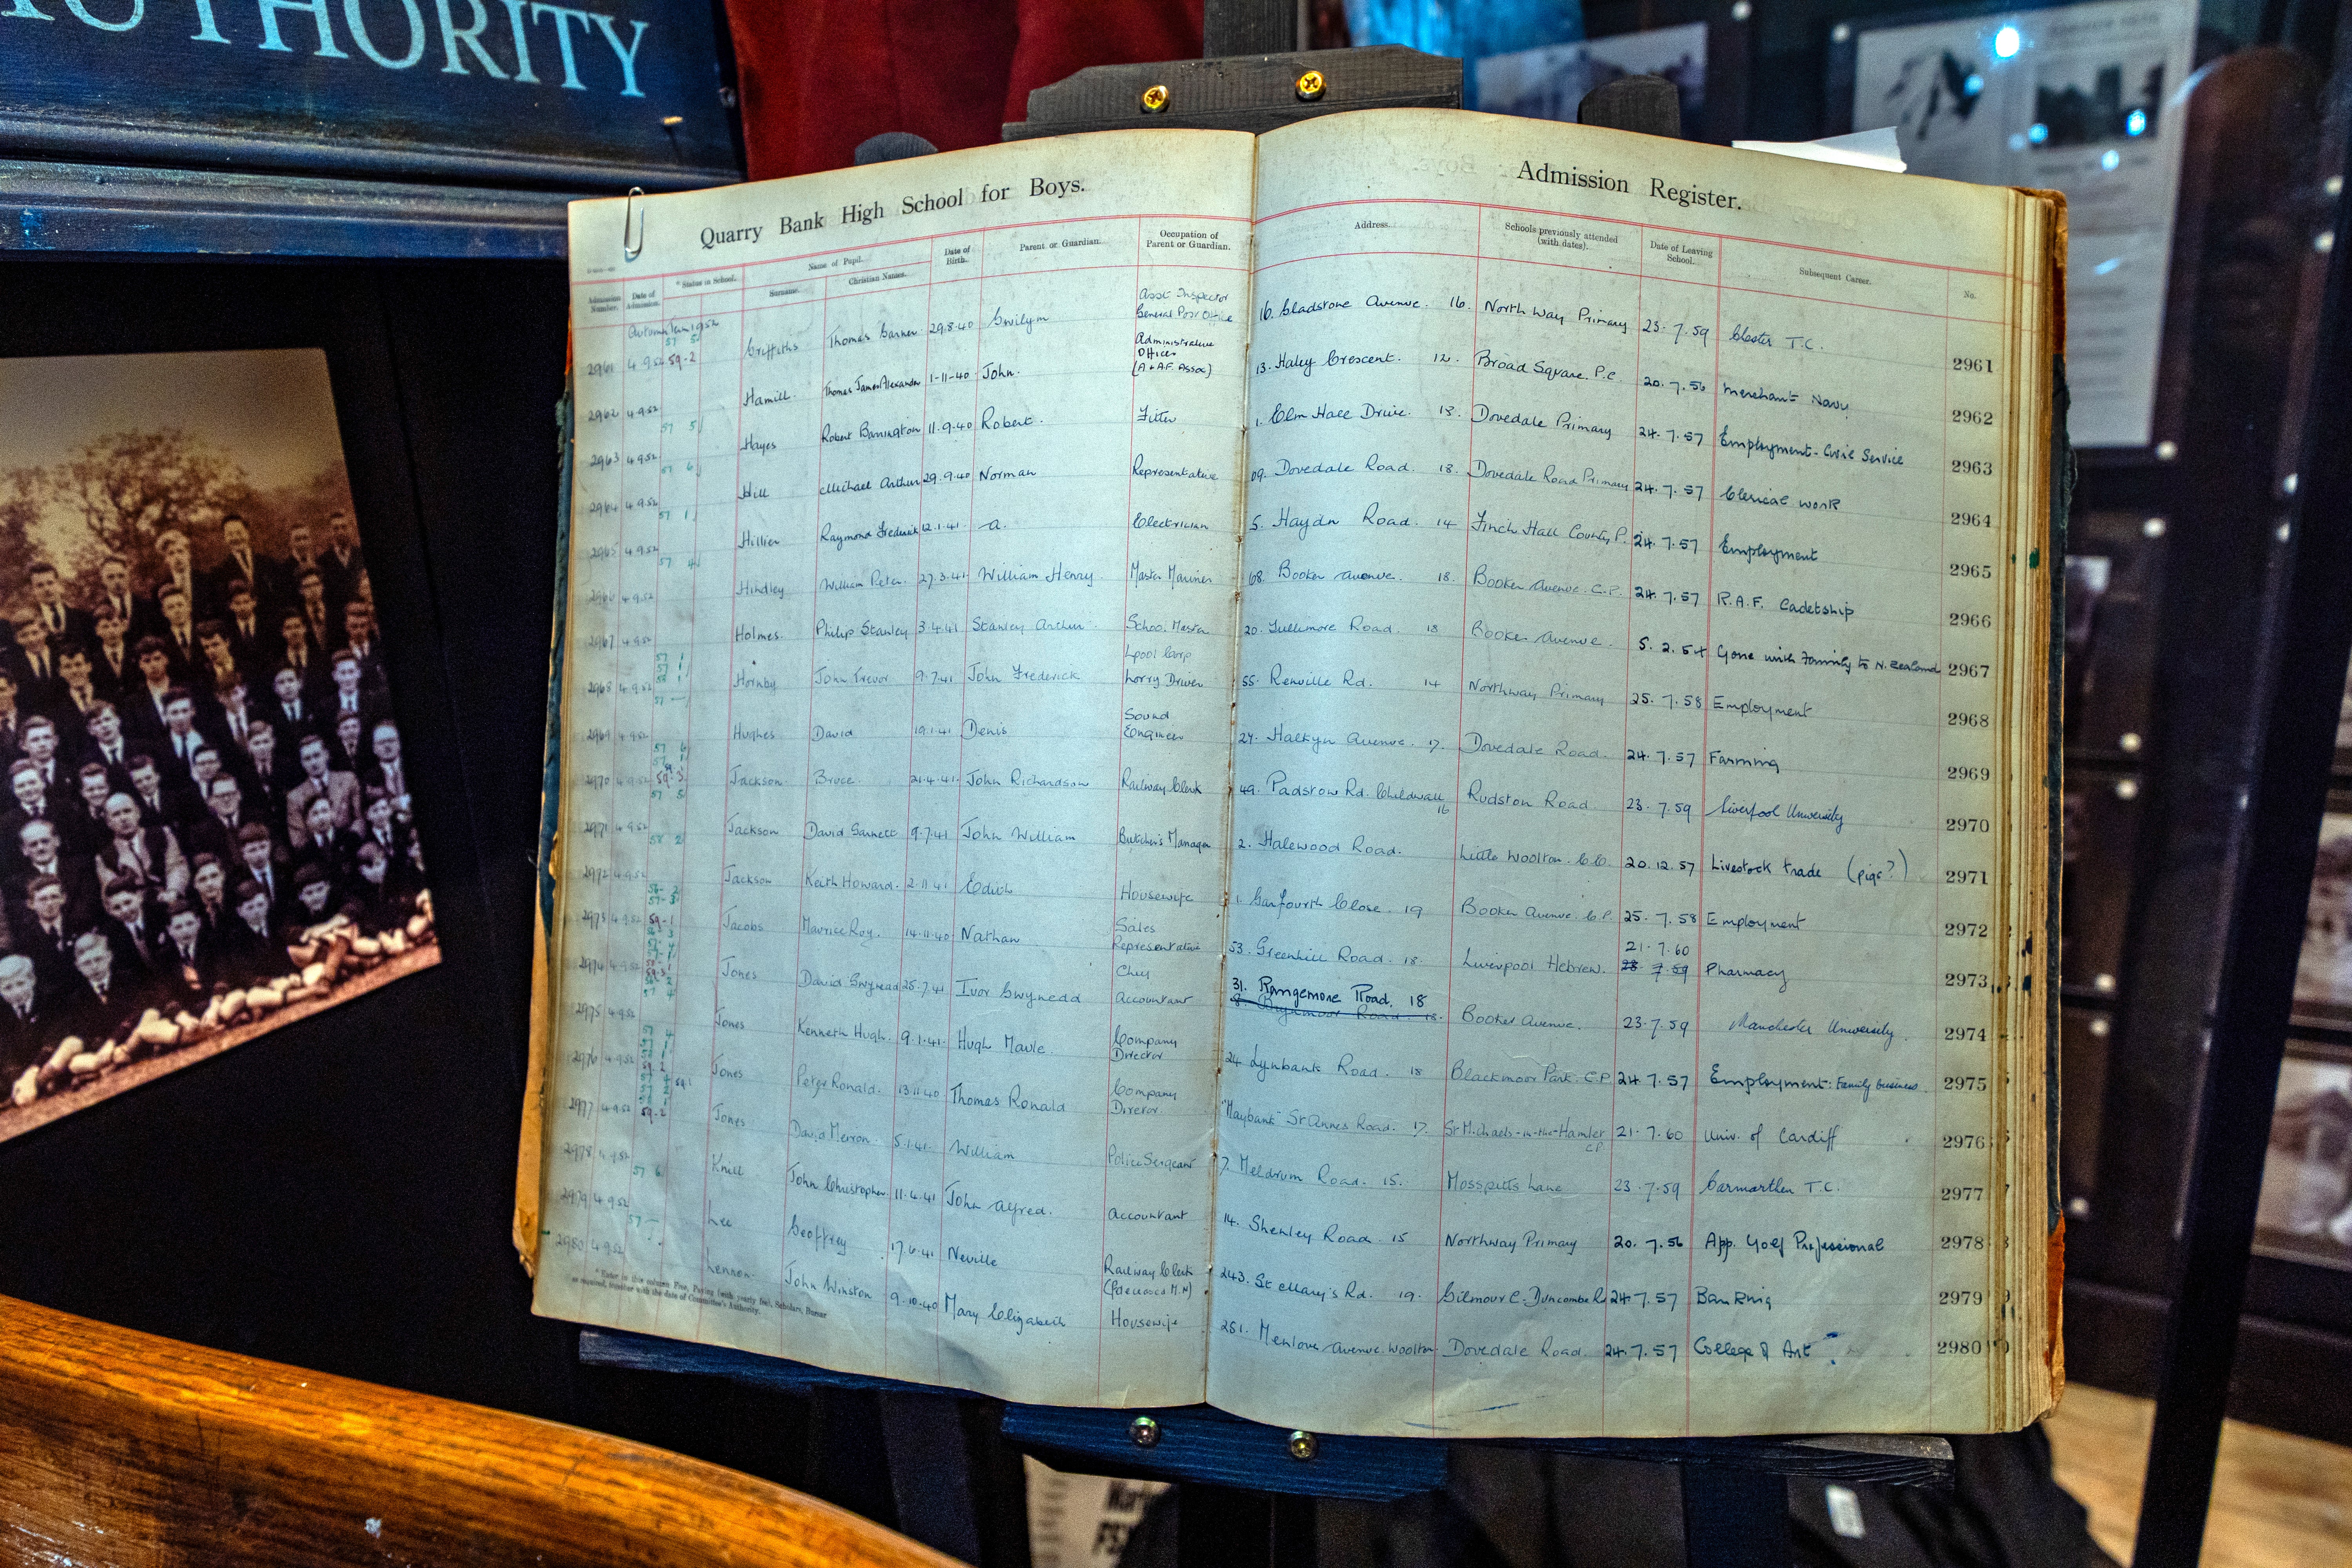 AUTHORITY
Quarry Bank High School for Boys.
Admission Register.
Admission Number. Date of Admission. * Status in School. Name of Pupil. Surname. Christian Names. Date of Birth. Parent or Guardian. Occupation of Parent or Guardian. Address. Schools previously attended (with dates). Date of Leaving School. Subsequent Career. No.
Autumn Term 1952
2961 4 9 52 59-2 Griffiths Thomas 29.8.40 Gwilym Asst Inspector General Post Office 16. Gladstone Avenue. 16. North Way Primary 23. 7. 59 Chester T.C. 2961
2962 4 9 52 Hamill. Thomas James Alexander 1-11-40 John. Administrative Officer (A+AF. Assoc) 13. Haley Crescent. 12. Broad Square. P.C. 20. 7. 56 Merchant Navy 2962
2963 4 9 52 57 5 Hayes Robert Barrington 11.9.40 Robert. Fitter 1. Elm Hall Drive. 18. Dovedale Primary 24. 7. 57 Employment - Civil Service 2963
2964 4 9 52 57 6 Hill Michael Arthur 29.9.40 Norman Representative 09. Dovedale Road. 18. Dovedale Road Primary 24. 7. 57 Clerical work 2964
2965 4 9 52 57 1 Hillier Raymond Frederick 12.1.41 A. Electrician 5. Haydn Road. 14 Finch Hall County P. 24. 7. 57 Employment 2965
2966 4 9 52 57 4 Hindley William Peter. 27.3.41 William Henry. Master Mariner 68. Booker Avenue. 18. Booker Avenue. C.P. 24. 7. 57 R.A.F. Cadetship 2966
2967 4 9 52 Holmes. Philip Stanley 3.4.41 Stanley Arthur. School Master 20. Road. 18 Booker Avenue. 5. 2. 54 Gone with Family to N. Zealand 2967
2968 4 9 52 Hornby John Trevor 9.7.41 John Frederick Lpool Corp Lorry Driver 55. Renville Rd. 14 Northway Primary 25. 7. 58 Employment 2968
2969 4 9 52 Hughes David 19.1.41 Denis Sound Engineer 27. Halkyn Avenue. 17. Dovedale Road. 24. 7. 57 Farming 2969
2970 4 9 52 Jackson Bruce. 21.4.41 John Richardson Railway Clerk 49. Padstow Rd. Childwall 16 Rudston Road 23. 7. 59 Liverpool University 2970
2971 4 9 52 57 5 Jackson David Garnett 9.7.41 John William Butcher's Manager 2. Halewood Road. Little Woolton. C.C. 20. 12. 57 Livestock trade (pigs?) 2971
2972 4 9 52 58 2 Jackson Keith Howard. 2.11.41 Edith Housewife 1. Garfourth Close. 19 Booker Avenue. C.P. 25. 7. 58 Employment 2972
2973 4 9 52 59-1 Jacobs Maurice Roy. 14.11.40 Nathan Sales Representative 53. Greenhill Road. 18. Liverpool Hebrew. 21. 7. 60 23 7. 59 Pharmacy 2973
2974 4 9 52 Jones David Gwynedd 25.7.41 Ivor Gwynedd Chief Accountant 31. Rangemore Road. 18 Booker Avenue. 23.7.59 Manchester University. 2974
2975 4 9 52 Jones Kenneth Hugh. 9.1.41. Hugh Maule. Company Director 24 Lynbank Road. 18 Blackmoor Park. C.P 24 7. 57 Employment: Family business. 2975
2976 4 9 52 Jones Peter Ronald. 13.11.40 Thomas Ronald Company Director. "Maybank" St Annes Road. 17. St Michaels-in-the-Hamlet CP 21. 7. 60 Univ. of Cardiff 2976
2977 4 9 52 59-2 Jones David Merion. 5.1.41. William Police Sergeant 7. Meldrum Road. 15. Mosspitts Lane 23. 7. 59 Carmarthen T.C. 2977
2978 4 9 52 57 6 Knill John Christopher. 11.4.41 John Alfred. Accountant 14. Shenley Road. 15 Northway Primary 20. 7. 56 App. Golf Professional 2978
2979 4 9 52 Lee Geoffrey 17.6.41 Neville Railway Clerk (Deceased M.N) 243. St Mary's Rd. 19. Gilmour C. Duncombe Rd 24. 7. 57 Banking 2979
2980 4 9 52 Lennon. John Winston 9.10.40 Mary Elizabeth Housewife 251. Menlove Avenue. Woolton Dovedale Road. 24. 7. 57 College of Art 2980
* Enter in this column Free, Paying (with yearly fee), Scholars, Bursar
as required, together with the date of Committee's Authority.